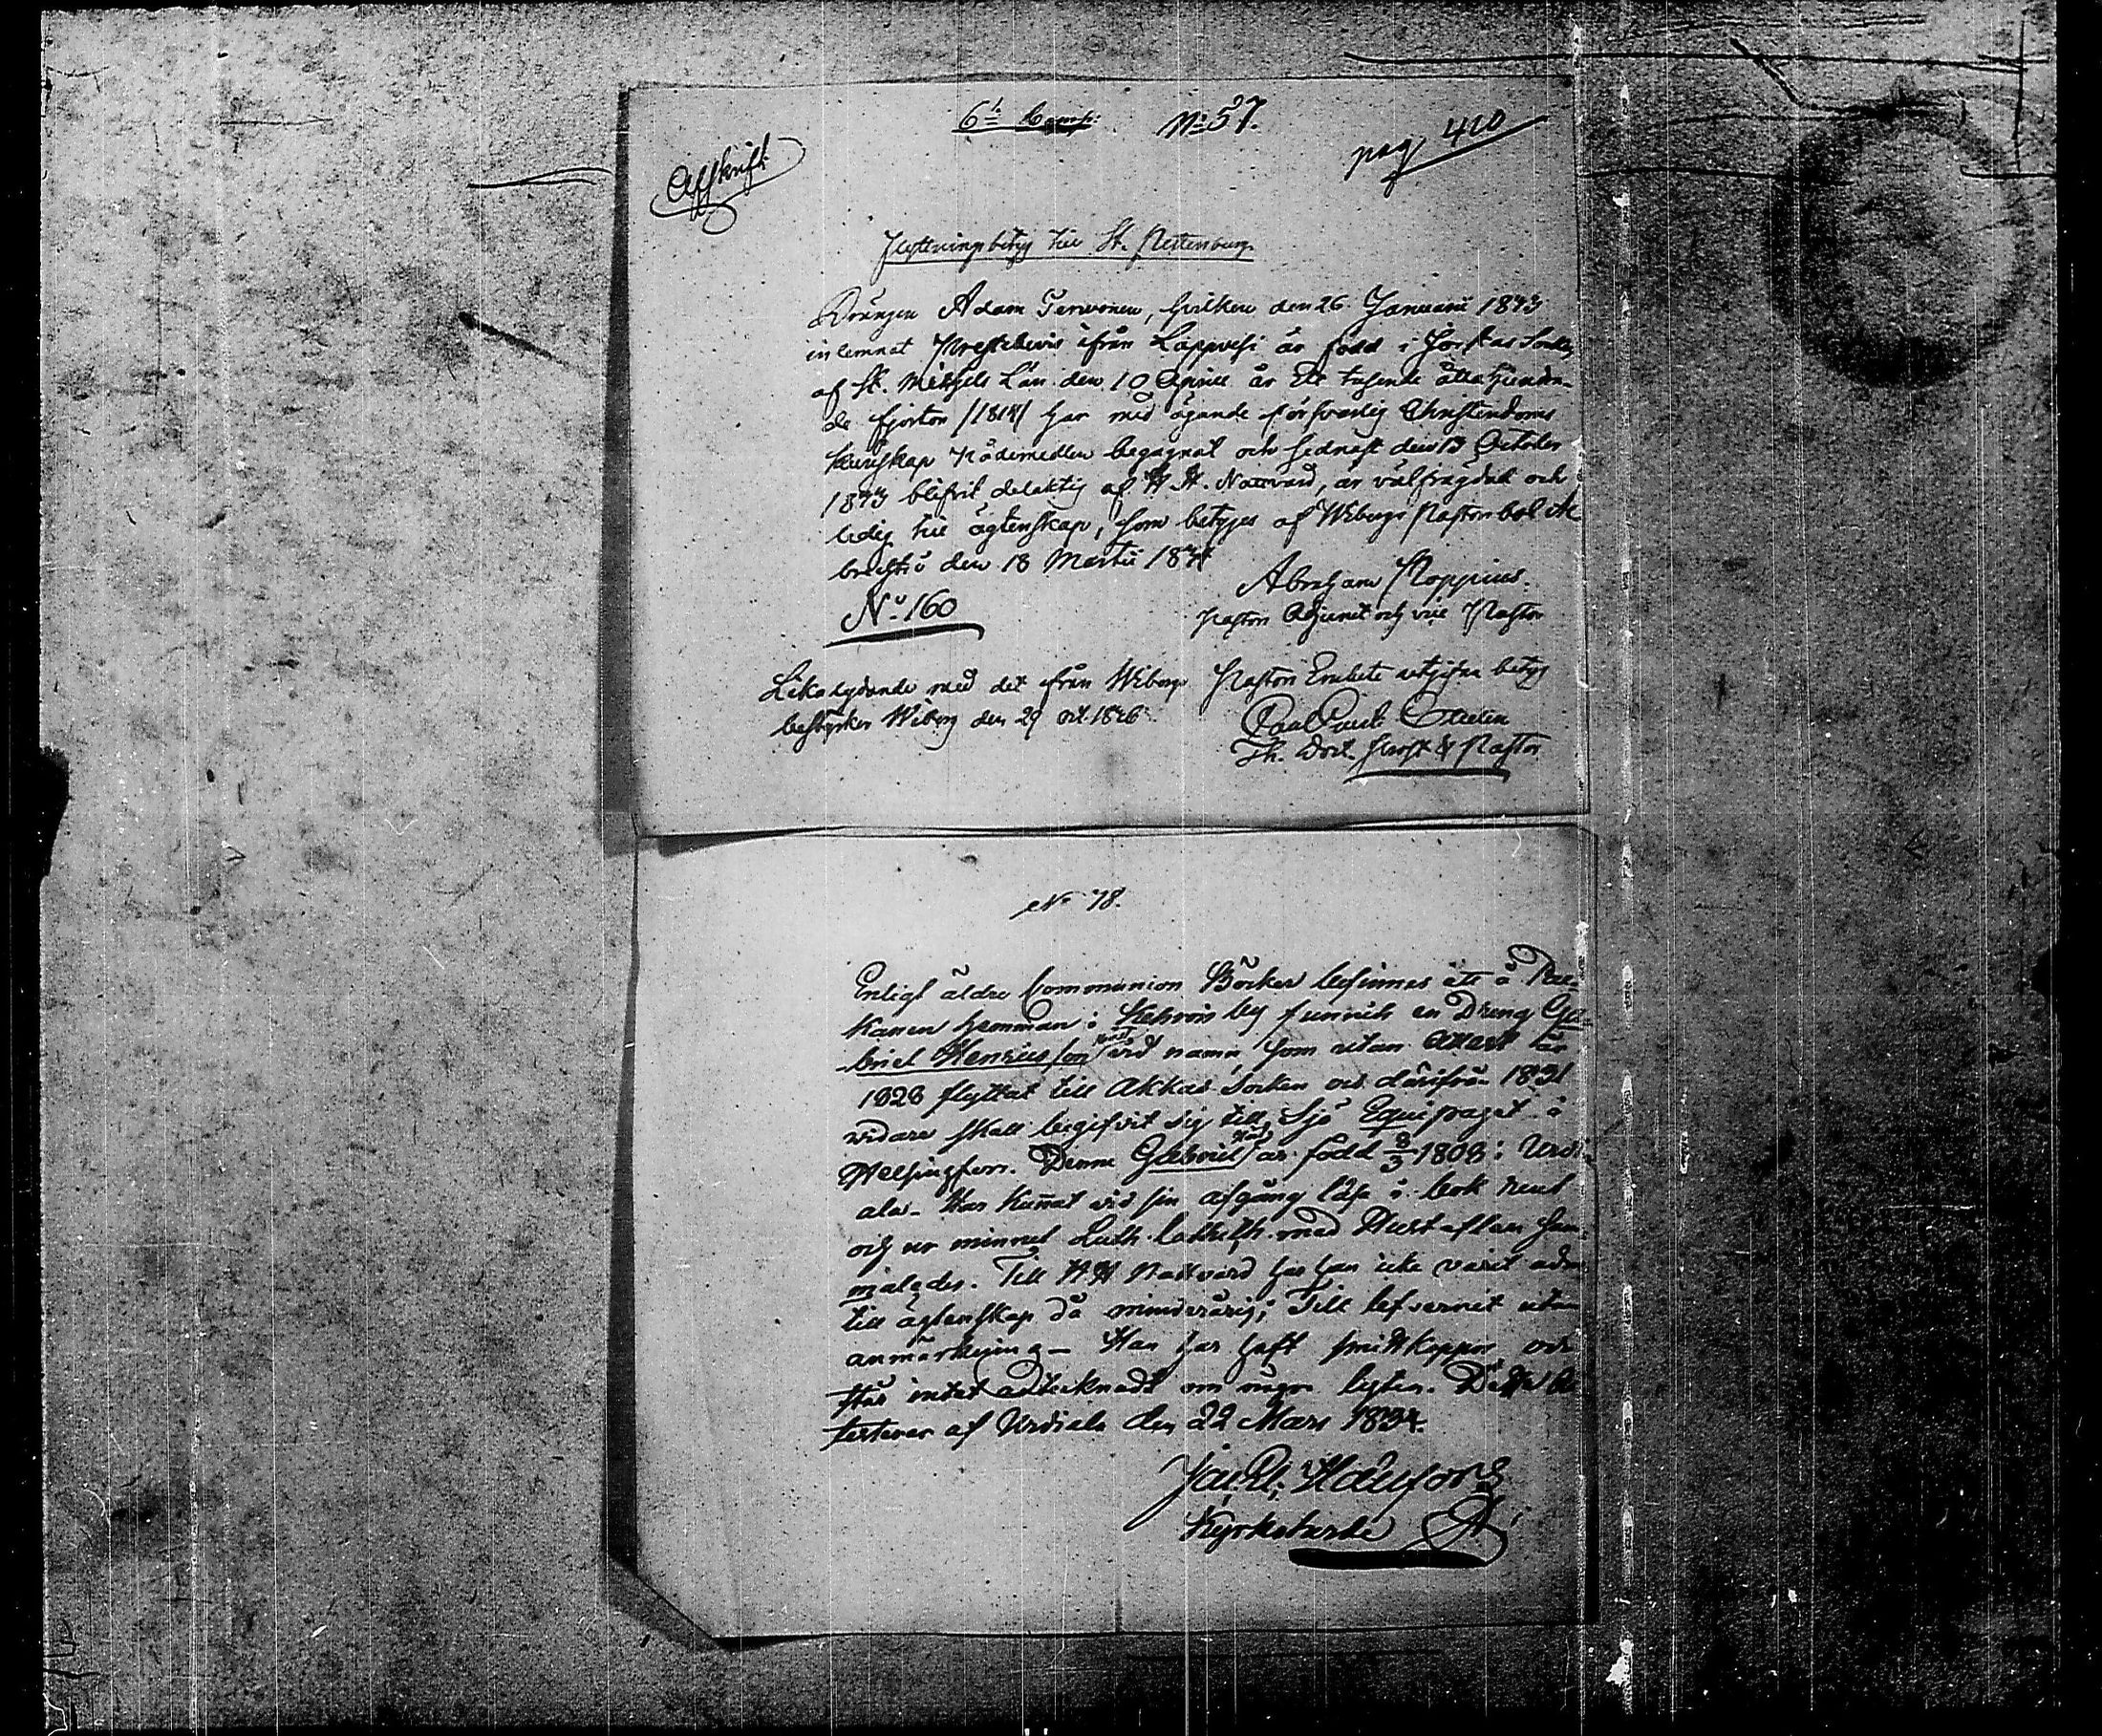 6te Comp: No 57.
pag 410
Afskrift
Flyttningsbetyg till St. Petersburg
Drängen Adam Terwonen, hvilken den 26 Januarii 1843
inlemnat Prestebevis ifrån Lappvesi är född i Jorkas Sockn
af St. Michels Län den 10 Aprill år Ett tusende åtta hundra-
de fjorton /1814/ har med ägande försvarlig Christendoms
kunskap nådemedlen begagnat och sednast den 13 October
1843 blifvit delaktig af H. H. Nattvard, är välfrägdad och
ledig till ägtenskap, som betyges af Wiborgs Pastorsbol
den 18 Martii 1844
Abraham Poppius.
No 160
Pastors Adjunct och vice Pastor
Lika lydande med det ifrån Wiborgs Pastors Embete utgifna betyg
bestyrker Wiborg den 29 Oct. 1846
Paul
Th. Doct. Prost & Pastor
No 78.
Enligt äldre Communion Böcker befinnes att å
kanen hemman i by funnits en Dreng Ga-
briel Henriksson vid namn som utan attest år
1828 flyttat till Akkas Sorken och därifrån 1831
vidare skall begifvit sig till Sjö Equipaget i
Helsingfors. Denne Gabriel är född 8/3 1808 i Urdi-
ala. Har kunnat vid sin afgång läsa i bok rent
och ur minnet Luth. Catheches med Hustaflan
Till H H Nattvard har han icke varit
till ägtenskap då minderårig; Till lefvernet utan
anmärkning – Han har haft smittkoppor och
står intet antecknadt om någon lysten. Detta
testerar af Urdiala den 22 Mars 1834.